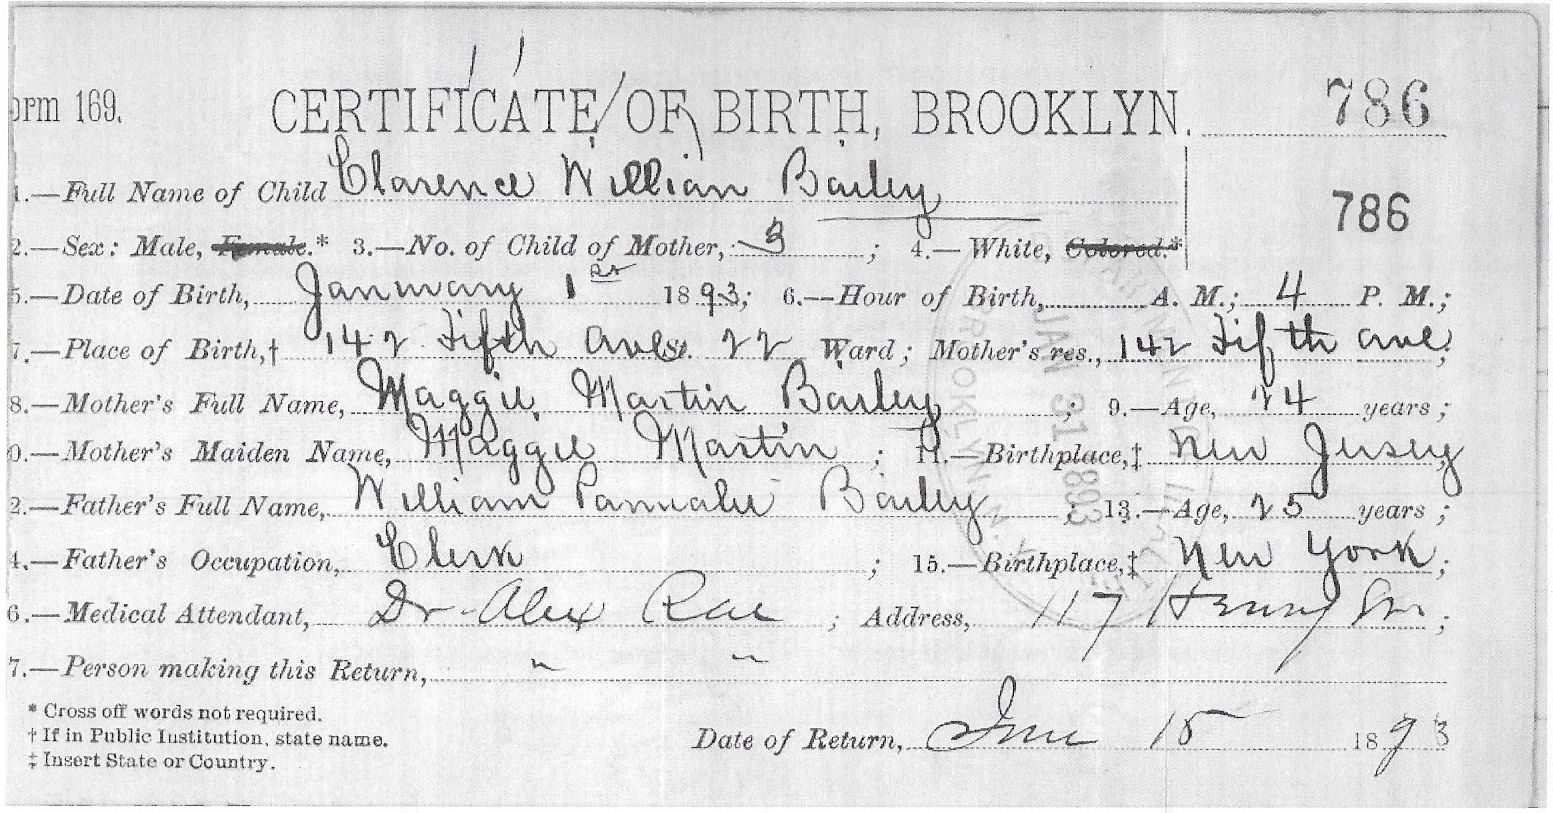 orm 169. CERTIFICATE OF BIRTH, BROOKLYN. 786
1.—Full Name of Child Clarence William Bailey 786
2.—Sex: Male, Female.* 3.—No. of Child of Mother, 3 ; 4.—White, Colored.*
5.—Date of Birth, Januuary 1st 1893; 6.—Hour of Birth, A. M.; 4 P. M.;
7.—Place of Birth,† 142 Fifth Ave St. 22 Ward; Mother's res., 142 Fifth Ave;
8.—Mother's Full Name, Maggie Martin Bailey ; 9.—Age, 24 years;
0.—Mother's Maiden Name, Maggie Martin ; 11.—Birthplace,‡ New Jersey;
2.—Father's Full Name, William Bailey ; 13.—Age, 25 years;
4.—Father's Occupation, Clerk ; 15.—Birthplace,‡ New York;
6.—Medical Attendant, Dr Alex Rae ; Address, 117 Henry St. ;
7.—Person making this Return, " "
* Cross off words not required.
† If in Public Institution, state name.
‡ Insert State or Country.
Date of Return, 15 1893
JAN 31 1893
BROOKLYN N.Y.